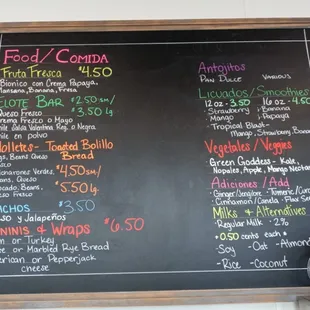 Food/Comida
Fruta Fresca $4.50
Bionico con Crema Papaya,
Manzana, Banana, Fresa
ELOTE BAR $2.50 sm/
Queso Fresco $3.50 lg
Crema Fresco o Mayo
Chile Salsa Valentina Rg. o Negra
Chile en polvo
Molletes - Toasted Bolillo
Bread
Beans Queso
Fresco
$4.50 sm/
Queso
Beans, $5.50 lg.
Nachos $3.50
Queso y Jalapeños
Paninis & Wraps $6.50
or Turkey
or Marbled Rye Bread
American or Pepperjack
cheese
Antojitos
Pan Dulce Various
Licuados/Smoothies
12 oz - 3.50 16 oz - 4.50
- Strawberry - Banana
- Mango - Papaya
- Tropical Blast -
Mango, Strawberry, Banana
Vegetales/Veggies
Green Goddess - Kale,
Nopales, Apple, Mango Nectar
Adiciones/Add
- Ginger/Jengibre - Tumeric/Curc
- Cinnamon/Canela - Flax See
Milks & Alternatives
- Regular Milk - 2%
+ 0.50 cents each +
- Soy - Oat - Almond
- Rice - Coconut